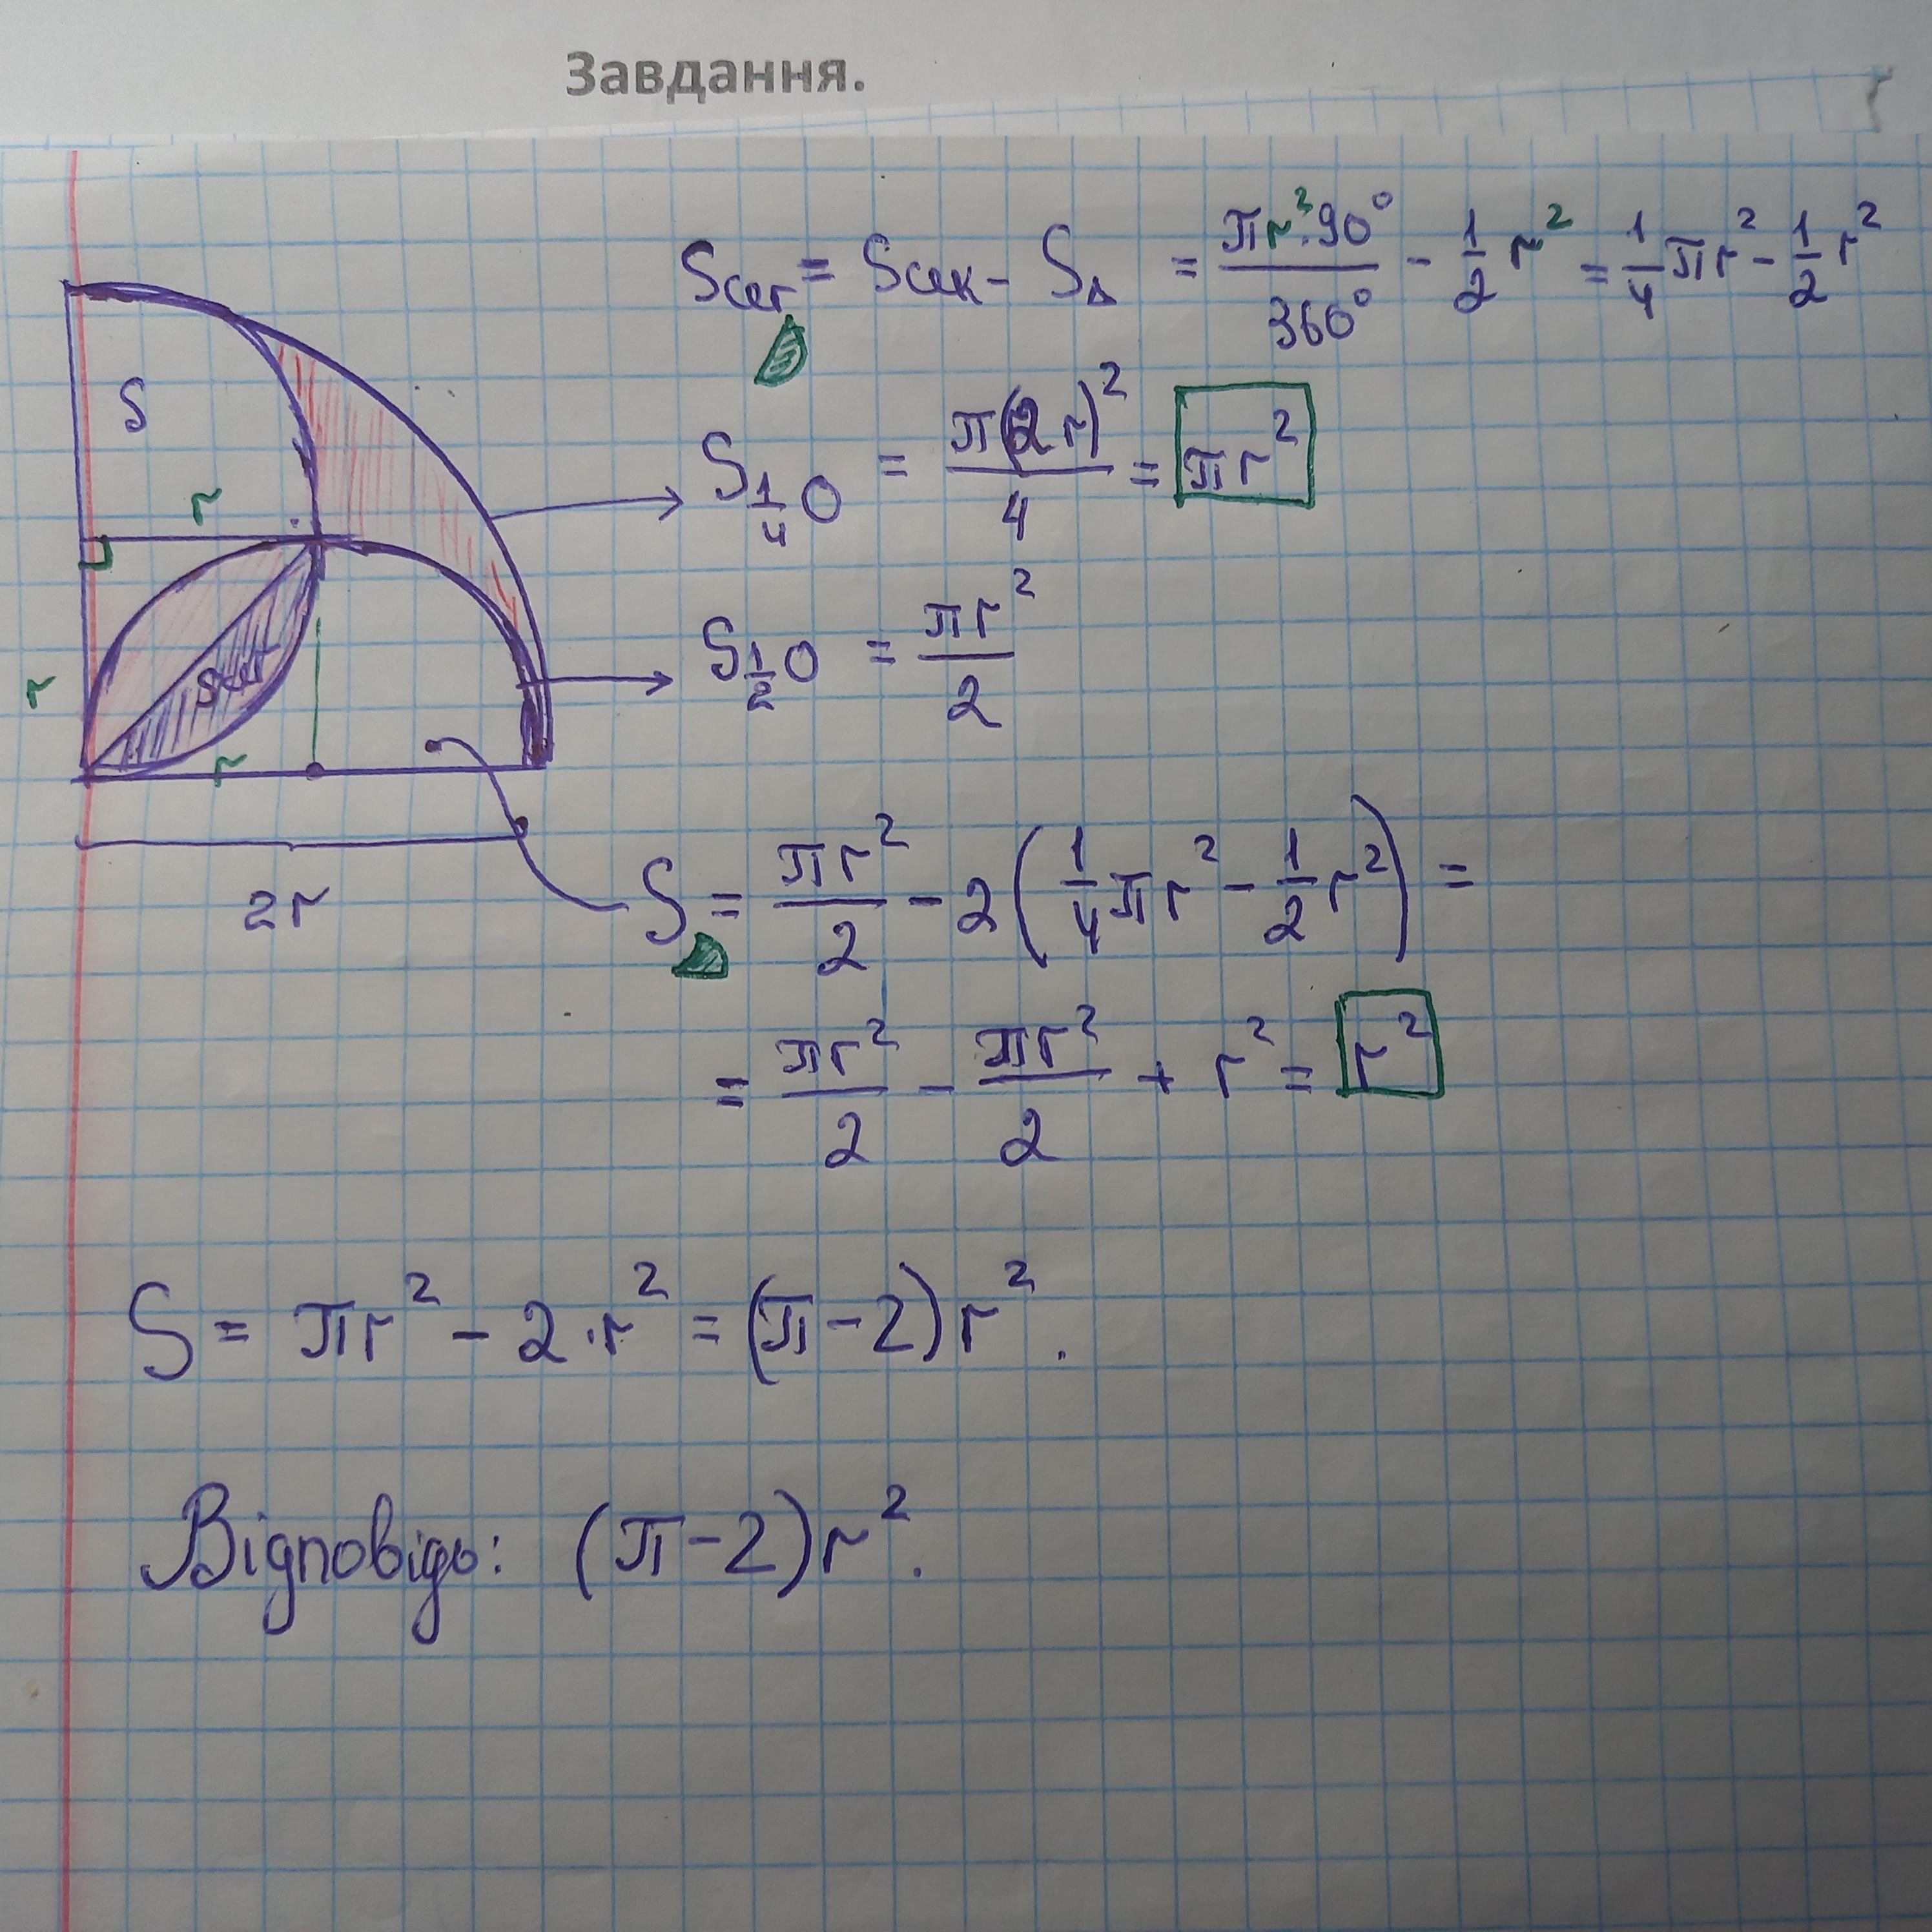 Завдання.
Sсег = Sсек - S△ = πr²·90°/360° - 1/2 r² = 1/4 πr² - 1/2 r²
S
S 1/4 O = π(2r)²/4 = πr²
r
S 1/2 O = πr²/2
r
Sсег
r
2r
S = πr²/2 - 2(1/4 πr² - 1/2 r²) =
= πr²/2 - πr²/2 + r² = r²
S = πr² - 2·r² = (π-2)r².
Відповідь: (π-2)r².